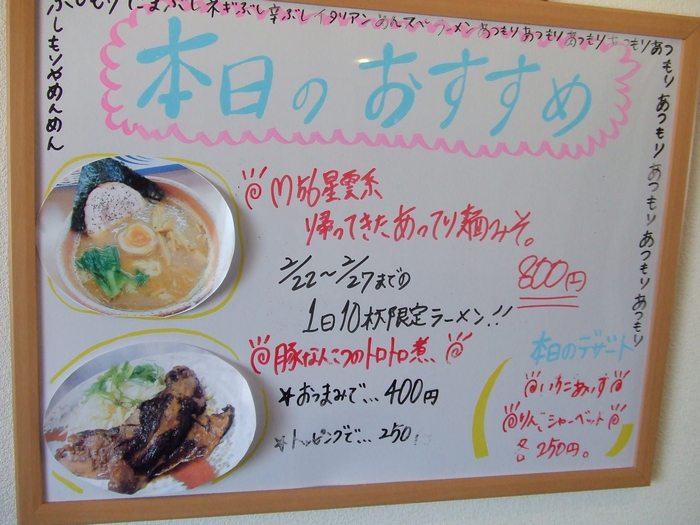 ねぎぶし辛ぶしイタリアンめんスペラーメンあつもりあつもりあつもりあつもりあつもりあつもりあつもりあつもりあつもり
ぶしもりやめんめん
本日のおすすめ
M56星雲系
帰ってきたあってり麺みそ。
2/22〜2/27までの
800円
1日10杯限定ラーメン!!
豚なんこつのトロトロ煮
*おつまみで...400円
*トッピングで...250
本日のデザート
いちごあいす
りんごシャーベット
各250円。